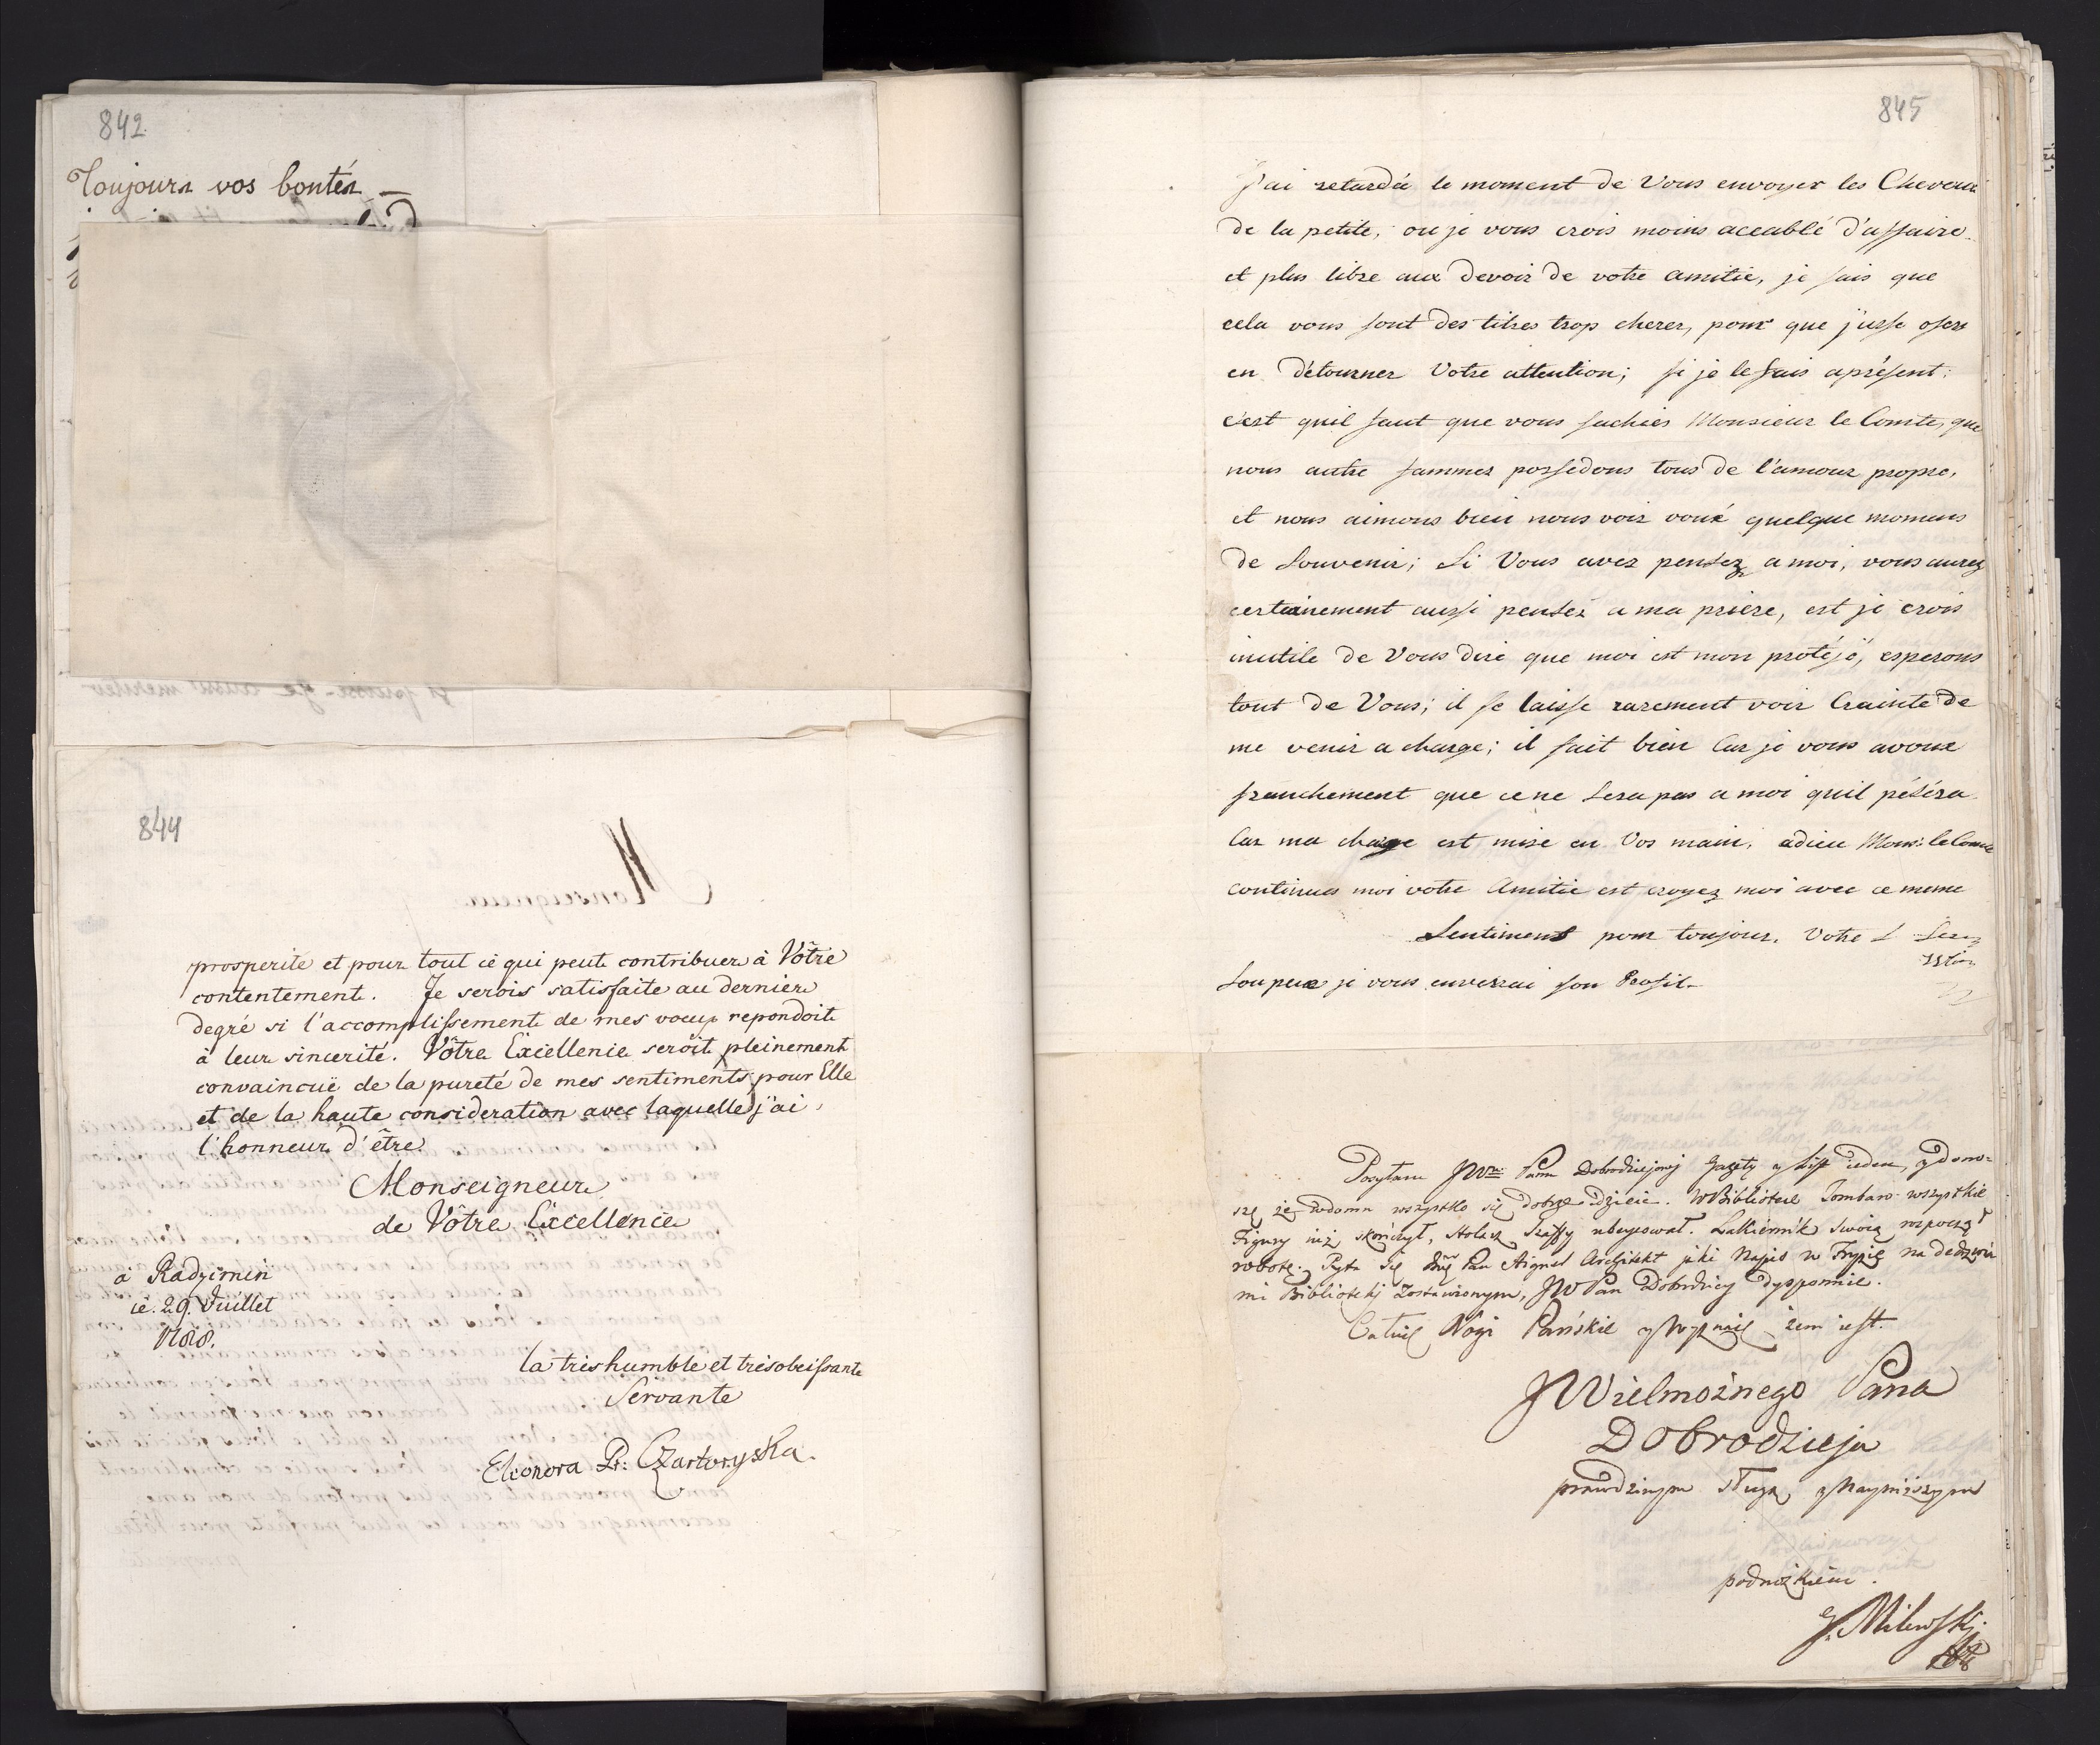 842
Toujours vos bontés —
844
prosperite et pour tout ce qui peut contribuer à Vôtre
contentement. Je serois satisfaite au dernier
degré si l'accomplissement de mes voeux repondoit
à leur sincerité. Vôtre Excellence seroit pleinement
convaincuë de la pureté de mes sentiments pour Elle
et de la haute consideration avec laquelle j'ai
l'honneur d'être
Monseigneur
de Vôtre Excellence
à Radzimin
ce 29. Juillet
1788.
la tres humble et trés obeissante
Servante
Eleonora Pr: Czartoryska.
845
J'ai retardéa le moment de Vous envoyer les Cheveux
de la petite, ou je vous crois moins accablé d'affaire
et plus libre aux Devoir de votre amitie, je sais que
cela vous sont des titres trop cheres, pour que j'usse oser
en détourner Votre attention; si je le fais apresent
c'est quil faut que vous sachiés Monsieur le Comte, que
nous autre fammes possedons tous de l'amour propre,
et nous aimons bien nous voir voué quelque momens
de Souvenir; Si Vous avez pensez a moi, vous aurez
certainement aussi pensez a ma priere, est je crois
inutile de Vous dire que moi est mon protéjé, esperons
tout de Vous; il se laisse rarement voir Crainte de
me venir a charge; il fait bien Car je vous avoue
franchement que ce ne Sera pas a moi quil péséra
Car ma charge est mise en Vos main, adieu Mons: le Comte
continues moi votre Amitie est croyez moi avec ce meme
Sentiment pour toujour. Votre
Sou peux je vous enverrai son Profil
Posyłam JWmu Panu Dobrodziejowi Gazety y List ieden, y dono-
szę że w domu wszystko się dobrze dzieie. W Bibliotece Tombaro wszystkie
Figury iuż skończył, stolarz Szaffy ubeycował. Lakiernik swoią rozpoczął
robotę. Pyta się Pan Aigner Architekt jaki Napis w Fryzie na dedrzwia
mi Biblioteki Zostawionym, JW Pan Dobrodziey dysponuie.
Całuię Nogi Pańskie y wyznaię żem iest.
JWielmożnego Pana
Dobrodzieja
prawdziwym sługą y Nayniższym
podnóżkiem.
J. Milewski